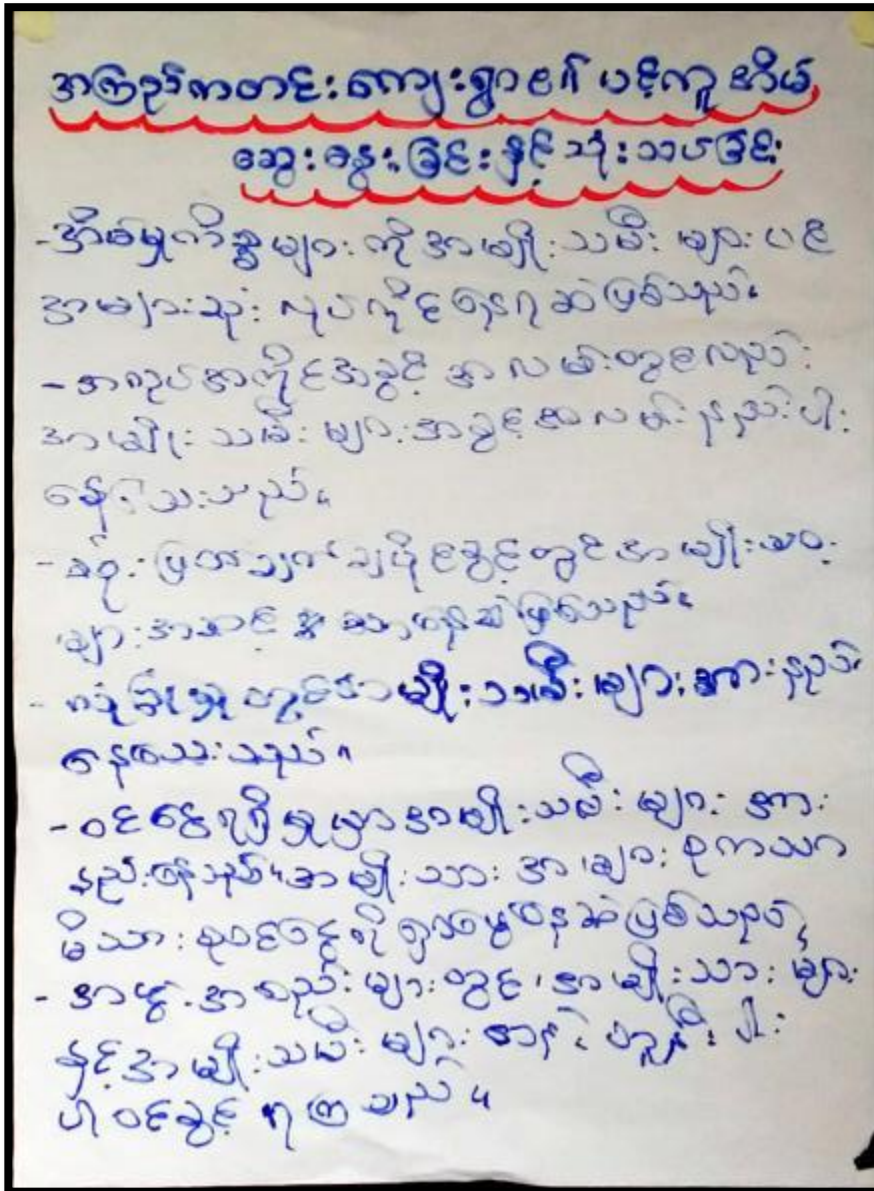 အကြည်ကတင်းကျေးရွာ၏ ပင့်ကူအိမ်
ဆွေးနွေးခြင်းနှင့်သုံးသပ်ခြင်း
-အိမ်မှုကိစ္စများကိုအမျိုးသမီးများပင်
အများဆုံးလုပ်ကိုင်နေရဆဲဖြစ်သည်။
-အလုပ်အကိုင်အခွင့်အလမ်းတွင်လည်း
အမျိုးသမီးများအခွင့်အလမ်းနည်းပါး
နေသေးသည်။
ဆုံးဖြတ်ချက်ချပိုင်ခွင့်တွင်အမျိုးသမီး
များအားနည်းနေဆဲဖြစ်သည်။
- လုံခြုံမှုတွင်အမျိုးသမီးများအားနည်း
နေသေးသည်။
-ဝင်ငွေရရှိမှုမှာအမျိုးသမီးများအား
နည်းနေသည်။အမျိုးသားအများစုကသာ
မိသားစုဝင်ငွေကိုရှာဖွေနေဆဲဖြစ်သည်။
-အဖွဲ့အစည်းများတွင်အမျိုးသားများ
နှင့်အမျိုးသမီးများတန်းတူညီး
ပါဝင်ခွင့်ရကြသည်။